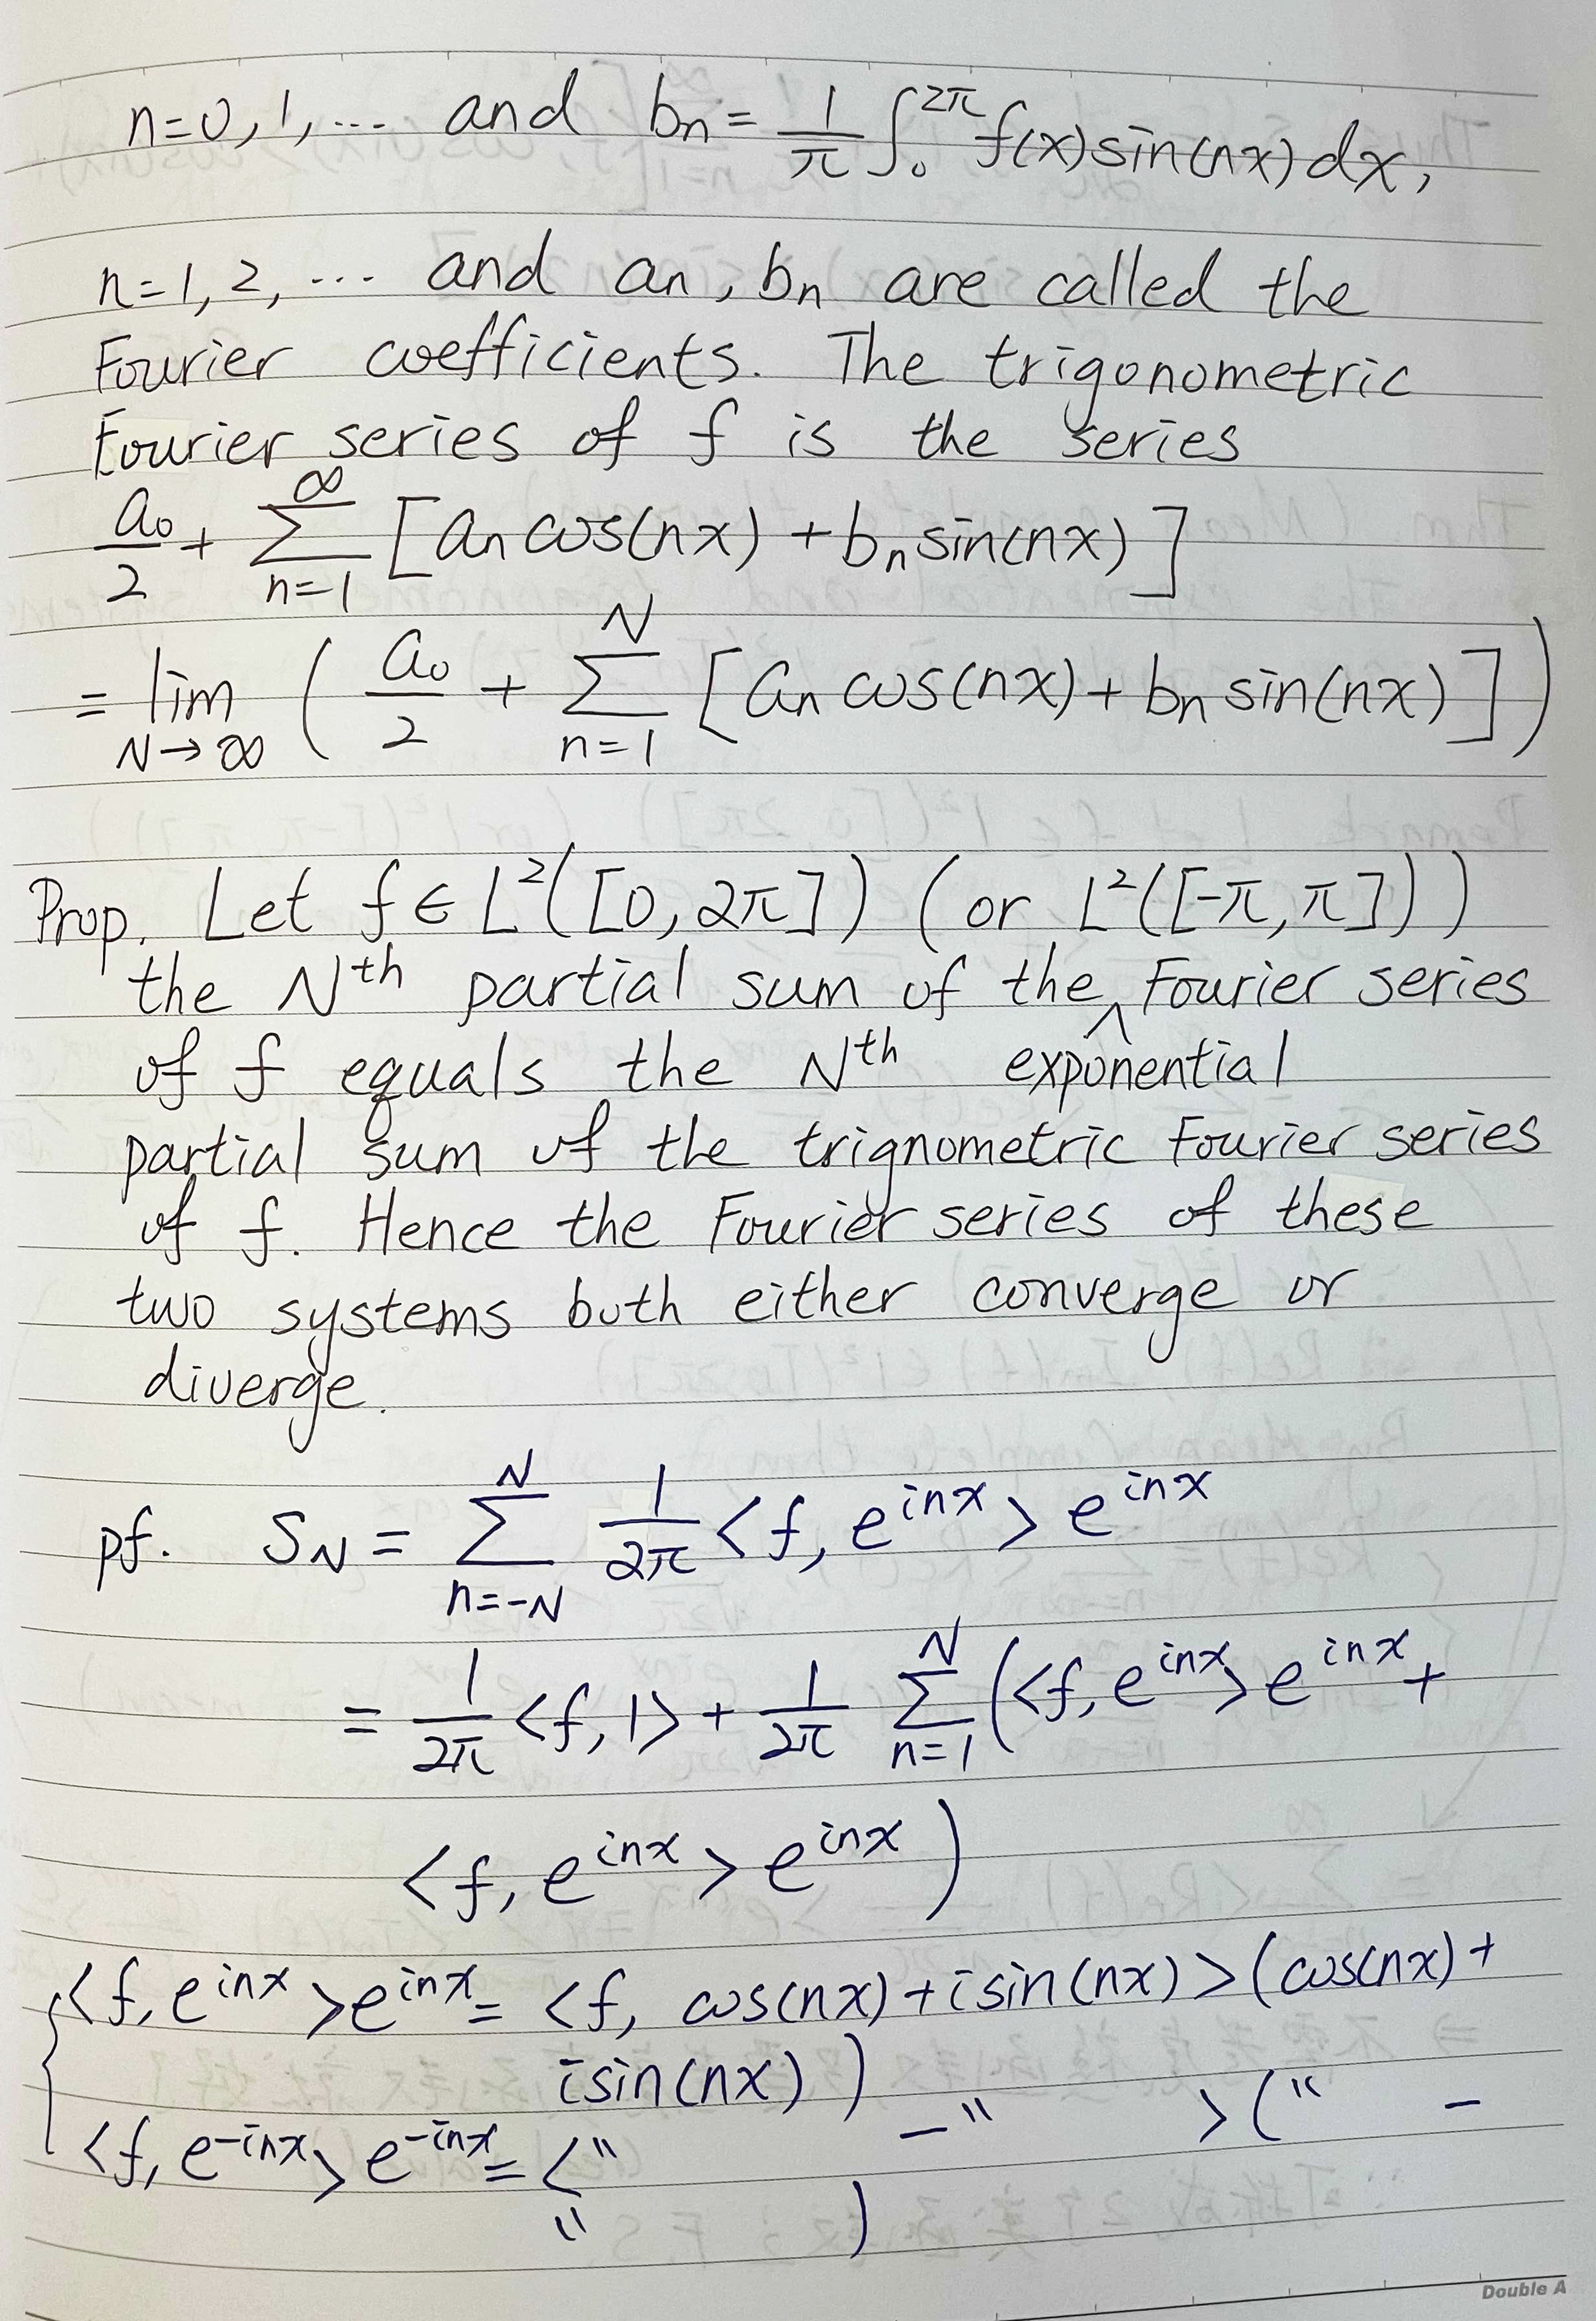 n=0,1,... and bn = 1/π ∫₀^2π f(x)sin(nx)dx,
n=1,2,... and an, bn are called the
Fourier coefficients. The trigonometric
Fourier series of f is the series
a₀/2 + ∑_{n=1}^∞ [an cos(nx) + bn sin(nx)]
= lim_{N→∞} ( a₀/2 + ∑_{n=1}^N [an cos(nx) + bn sin(nx)] )
Prop. Let f ∈ L²([0,2π]) (or L²([-π,π]))
the Nth partial sum of the ^ Fourier series
of f equals the Nth exponential
partial sum of the trignometric Fourier series
of f. Hence the Fourier series of these
two systems both either converge or
diverge.
pf. SN = ∑_{n=-N}^N 1/2π <f, e^inx> e^inx
= 1/2π <f,1> + 1/2π ∑_{n=1}^N (<f,e^inx>e^inx +
<f, e^inx> e^inx )
{ <f,e^inx>e^inx = <f, cos(nx)+isin(nx)>(cos(nx)+
isin(nx))
<f,e^-inx>e^-inx = <" -" >(" -
")
Double A